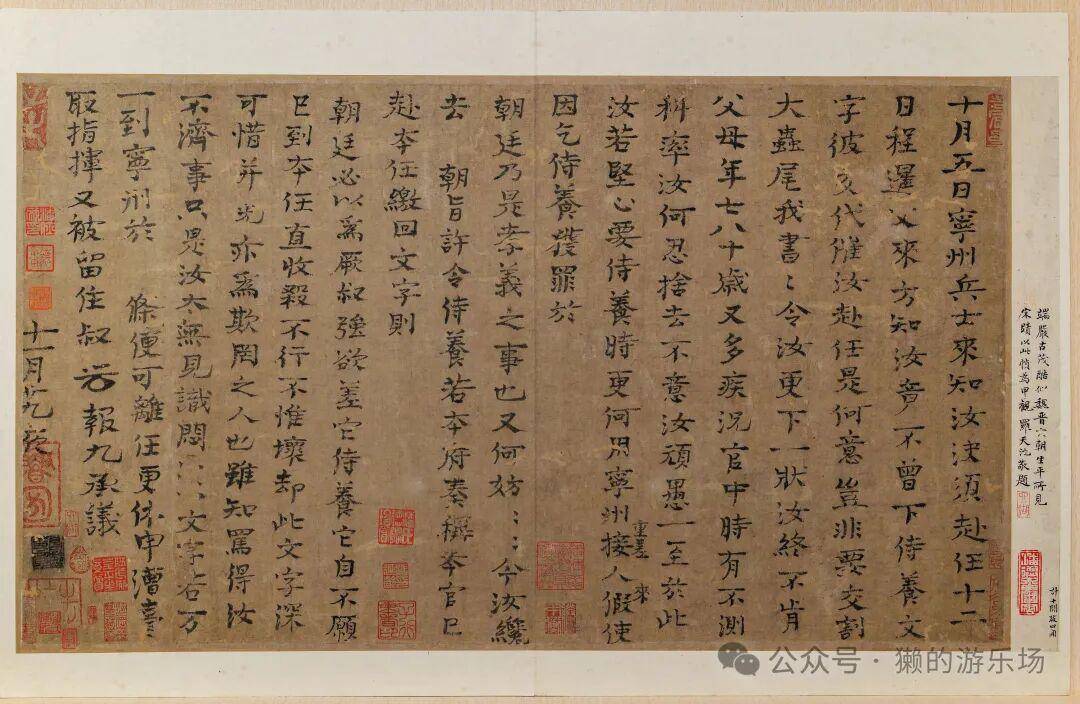 端嚴古茂酷似魏晉六朝生平所見
宋蹟以此幀為甲觀 羅天池敬題
十月五日寧州兵士來知汝決須赴任十二
日程暹父來方知汝竟不曾下侍養文
字彼交代催汝赴任是何意豈非要交割
大蟲尾我書〻令汝更下一狀汝終不肯
父母年七八十歲又多疾況官中時有不測
科率汝何忍捨去不意汝頑愚一至於此
重差 來
汝若堅心要侍養時更何用寧州接人假使
因乞侍養獲罪於
朝廷乃是孝義之事也又何妨〻〻今汝纔
去 朝旨許令侍養若本府奏稱本官已
赴本任繳回文字則
朝廷必以為厥叔強欲差它侍養它自不願
已到本任直收殺不行不惟壞却此文字深
可惜并光亦為欺罔之人也雖知罵得汝
不濟事只是汝太無見識悶〻〻文字若万
一到寧州於 條便可離任更依申漕臺
取指揮又被留住叔 報九承議
十一月
公众号·獭的游乐场